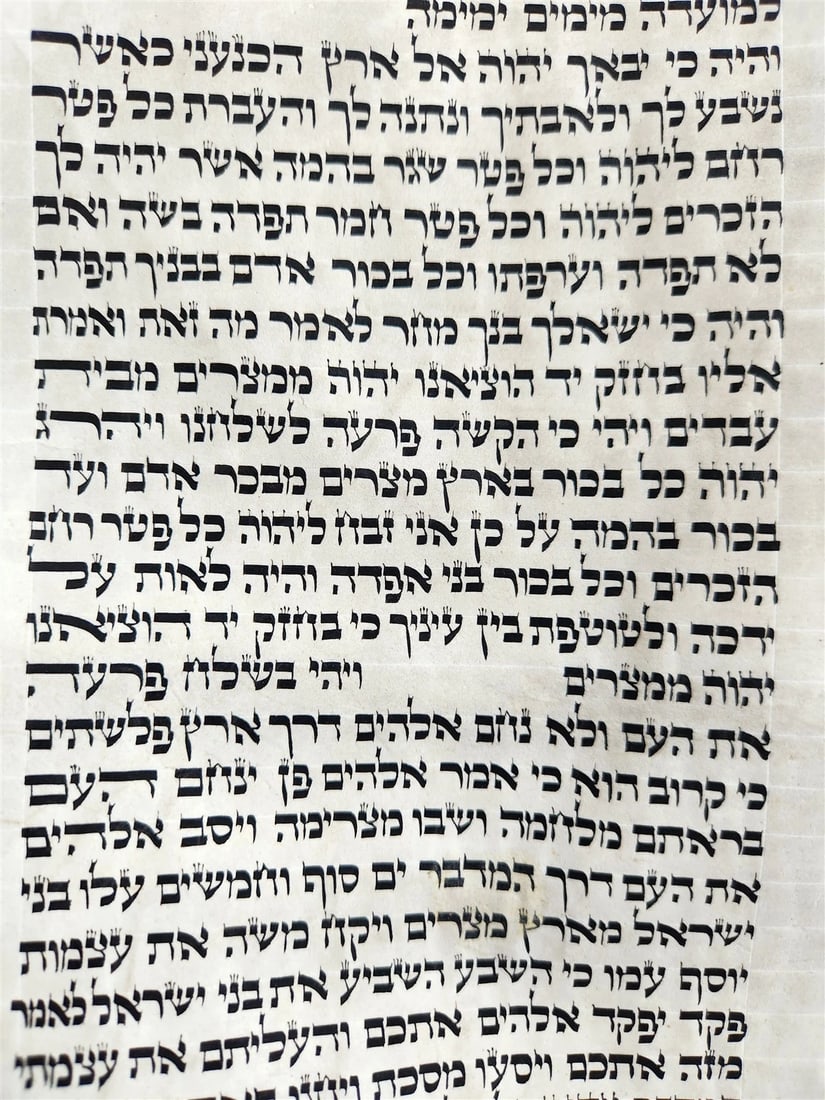 למועדה מימים ימימה
והיה כי יבאך יהוה אל ארץ הכנעני כאשר
נשבע לך ולאבתיך ונתנה לך והעברת כל פטר
רחם ליהוה וכל פטר שגר בהמה אשר יהיה לך
הזכרים ליהוה וכל פטר חמר תפדה בשה ואם
לא תפדה וערפתו וכל בכור אדם בבניך תפדה
והיה כי ישאלך בנך מחר לאמר מה זאת ואמרת
אליו בחזק יד הוציאנו יהוה ממצרים מבית
עבדים ויהי כי הקשה פרעה לשלחנו ויהרג
יהוה כל בכור בארץ מצרים מבכר אדם ועד
בכור בהמה על כן אני זבח ליהוה כל פטר רחם
הזכרים וכל בכור בני אפדה והיה לאות על
ידכה ולטוטפת בין עיניך כי בחזק יד הוציאנו
יהוה ממצרים ויהי בשלח פרעה
את העם ולא נחם אלהים דרך ארץ פלשתים
כי קרוב הוא כי אמר אלהים פן ינחם העם
בראתם מלחמה ושבו מצרימה ויסב אלהים
את העם דרך המדבר ים סוף וחמשים עלו בני
ישראל מארץ מצרים ויקח משה את עצמות
יוסף עמו כי השבע השביע את בני ישראל לאמר
פקד יפקד אלהים אתכם והעליתם את עצמתי
מזה אתכם ויסעו מסכת ויחנו